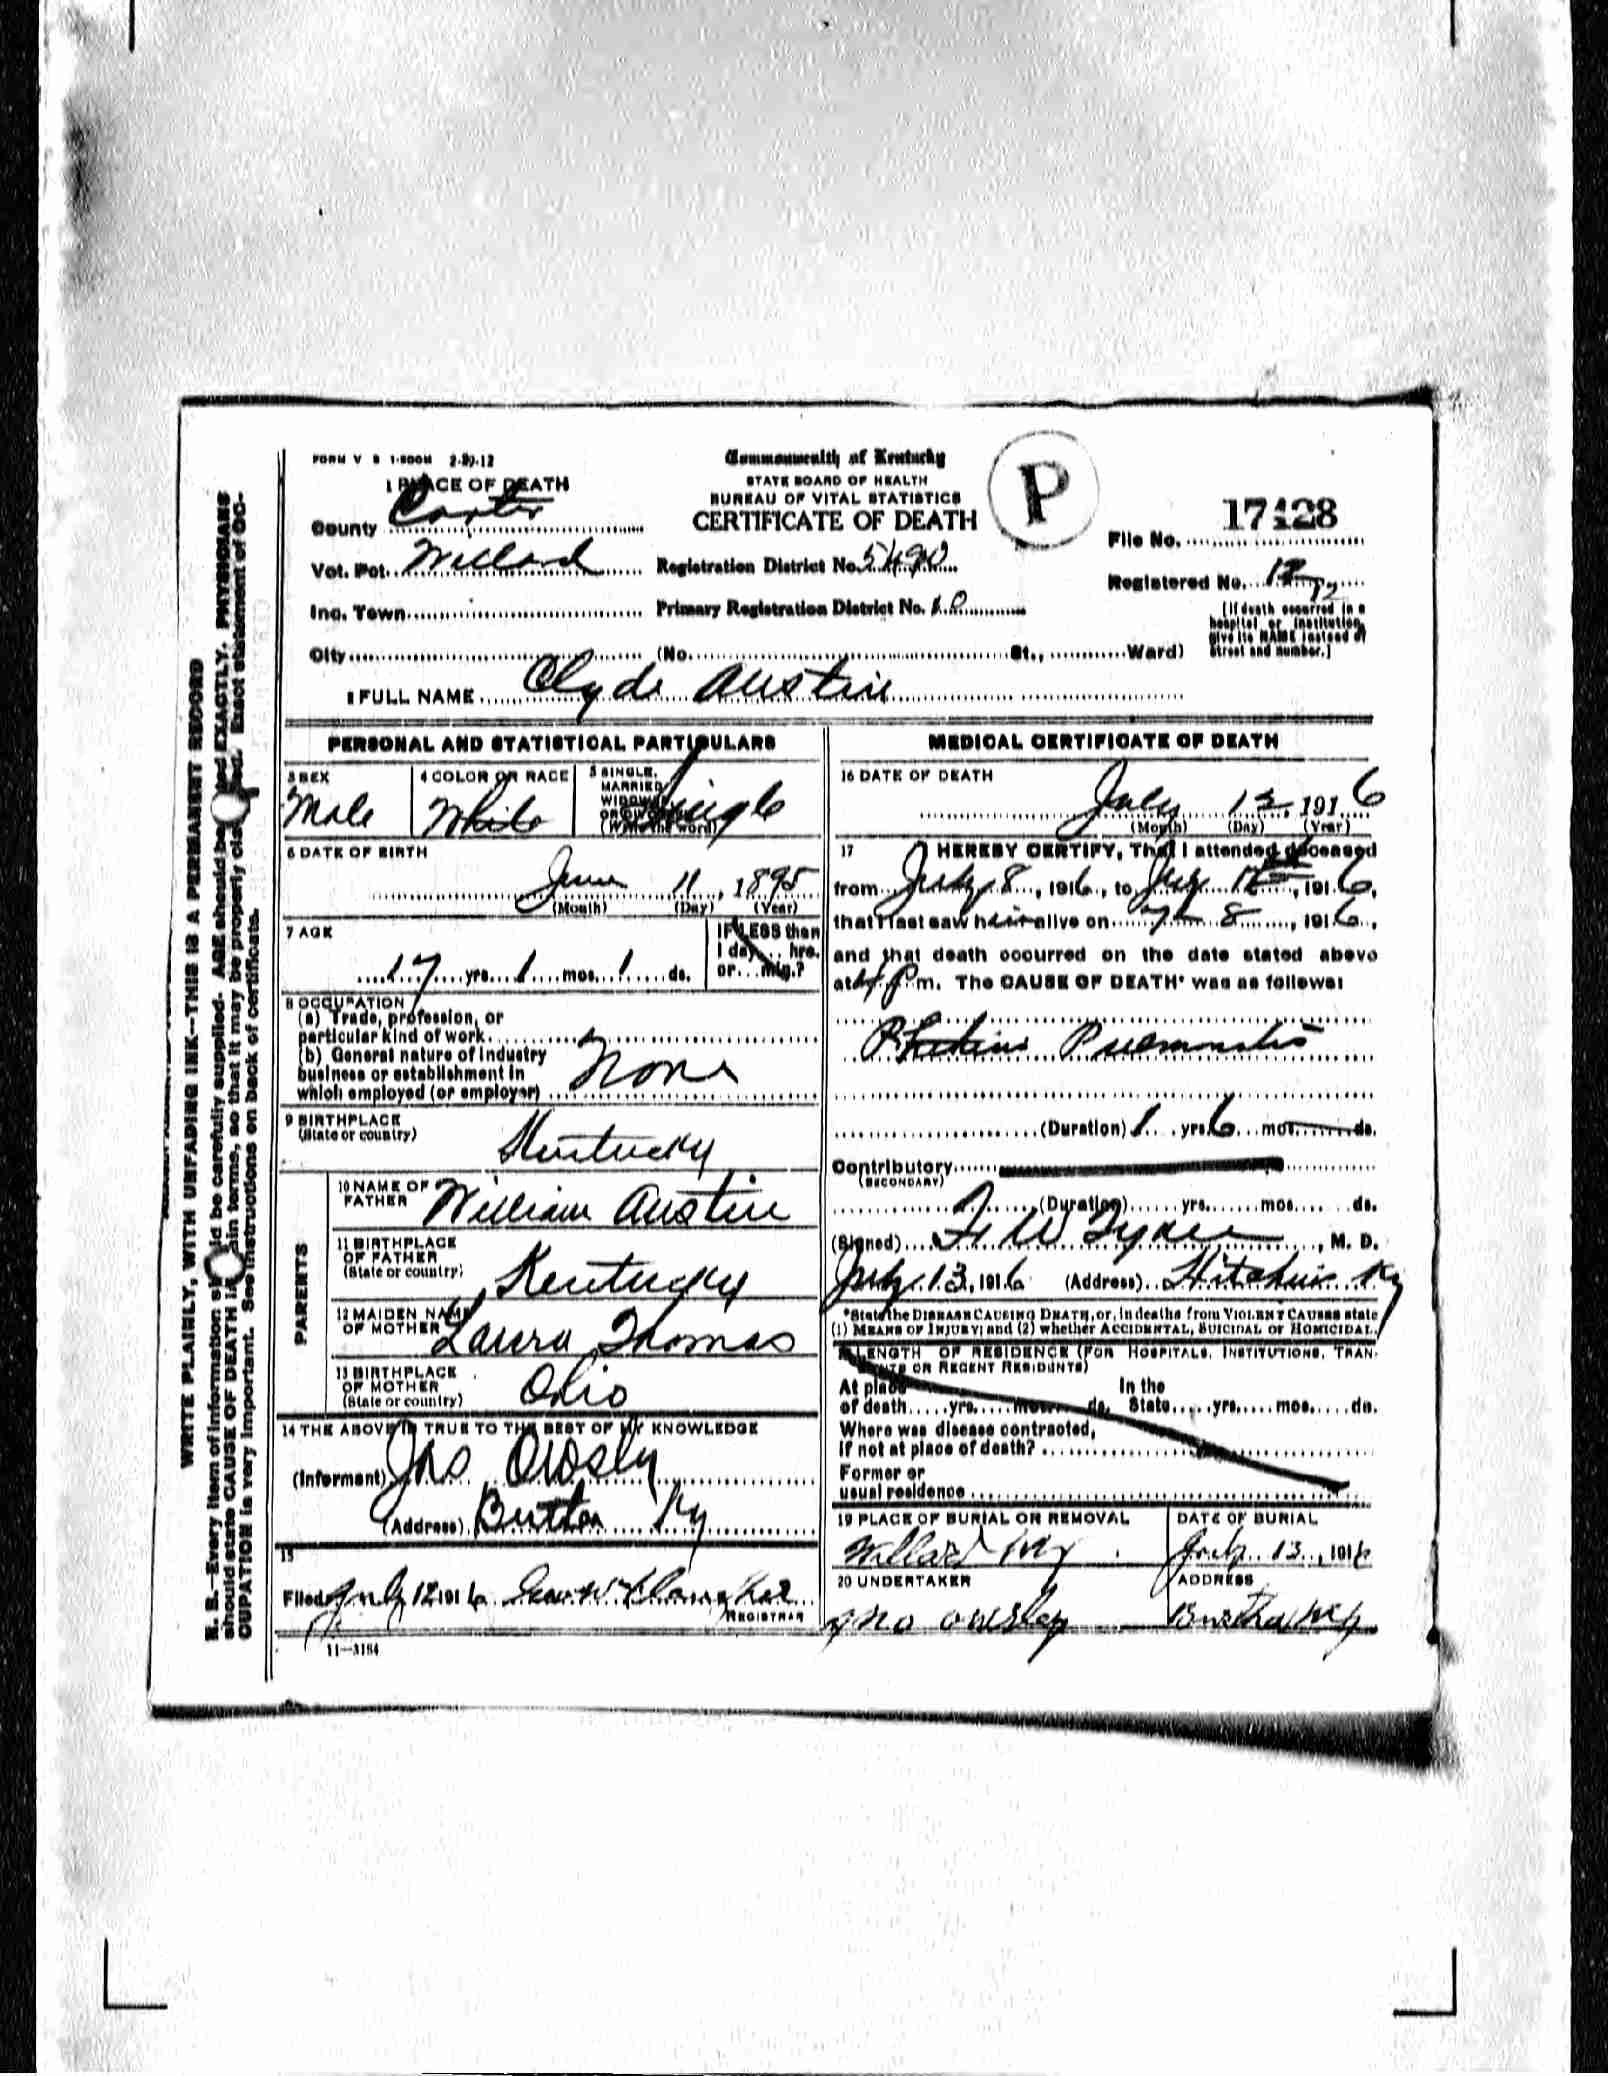 FORM V S 1-500M 2-29-12
Commonwealth of Kentucky
STATE BOARD OF HEALTH
BUREAU OF VITAL STATISTICS
CERTIFICATE OF DEATH
P
1 PLACE OF DEATH
County Carter
Vot. Pct. Willard
Registration District No. 5490
Inc. Town
Primary Registration District No. 10
City (No. St., Ward)
File No. 17428
Registered No. 12
[If death occurred in a
hospital or institution,
give its NAME instead of
street and number.]
2 FULL NAME Clyde Austin
PERSONAL AND STATISTICAL PARTICULARS
3 SEX
Male
4 COLOR OR RACE
White
5 SINGLE,
MARRIED,
WIDOWED
OR DIVORCED
(Write the word)
Single
6 DATE OF BIRTH
June 11, 1895
(Month) (Day) (Year)
7 AGE
17 yrs. 1 mos. 1 ds.
IF LESS than
1 day, hrs.
or min.?
8 OCCUPATION
(a) Trade, profession, or
particular kind of work
(b) General nature of industry
business or establishment in
which employed (or employer)
None
9 BIRTHPLACE
(State or country)
Kentucky
PARENTS
10 NAME OF
FATHER
William Austin
11 BIRTHPLACE
OF FATHER
(State or country)
Kentucky
12 MAIDEN NAME
OF MOTHER
Laura Thomas
13 BIRTHPLACE
OF MOTHER
(State or country)
Ohio
14 THE ABOVE IS TRUE TO THE BEST OF MY KNOWLEDGE
(Informant) Jno Owsley
(Address) Ky
15
Filed July 12 1916 Geo W
REGISTRAR
11—3184
MEDICAL CERTIFICATE OF DEATH
16 DATE OF DEATH
July 12, 1916
(Month) (Day) (Year)
17 I HEREBY CERTIFY, That I attended deceased
from July 8, 1916, to July 12, 1916,
that I last saw him alive on 8, 1916,
and that death occurred on the date stated above
at 4 P m. The CAUSE OF DEATH* was as follows:
(Duration) 1 yrs. 6 mos. ds.
Contributory
(SECONDARY)
(Duration) yrs. mos. ds.
(Signed) W , M. D.
July 13, 1916 (Address) Hitchins Ky
*State the DISEASE CAUSING DEATH, or, in deaths from VIOLENT CAUSES state
(1) MEANS OF INJURY; and (2) whether ACCIDENTAL, SUICIDAL or HOMICIDAL.
18 LENGTH OF RESIDENCE (FOR HOSPITALS, INSTITUTIONS, TRAN-
SIENTS OR RECENT RESIDENTS)
At place In the
of death yrs. mos. ds. State yrs. mos. ds.
Where was disease contracted,
if not at place of death?
Former or
usual residence
19 PLACE OF BURIAL OR REMOVAL
Willard Ky
DATE OF BURIAL
July 13, 1916
20 UNDERTAKER
Jno Owsley
ADDRESS
Ky
WRITE PLAINLY, WITH UNFADING INK—THIS IS A PERMANENT RECORD
N. B.—Every item of information should be carefully supplied. AGE should be stated EXACTLY. PHYSICIANS
should state CAUSE OF DEATH in plain terms, so that it may be properly classified. Exact statement of OC-
CUPATION is very important. See instructions on back of certificate.